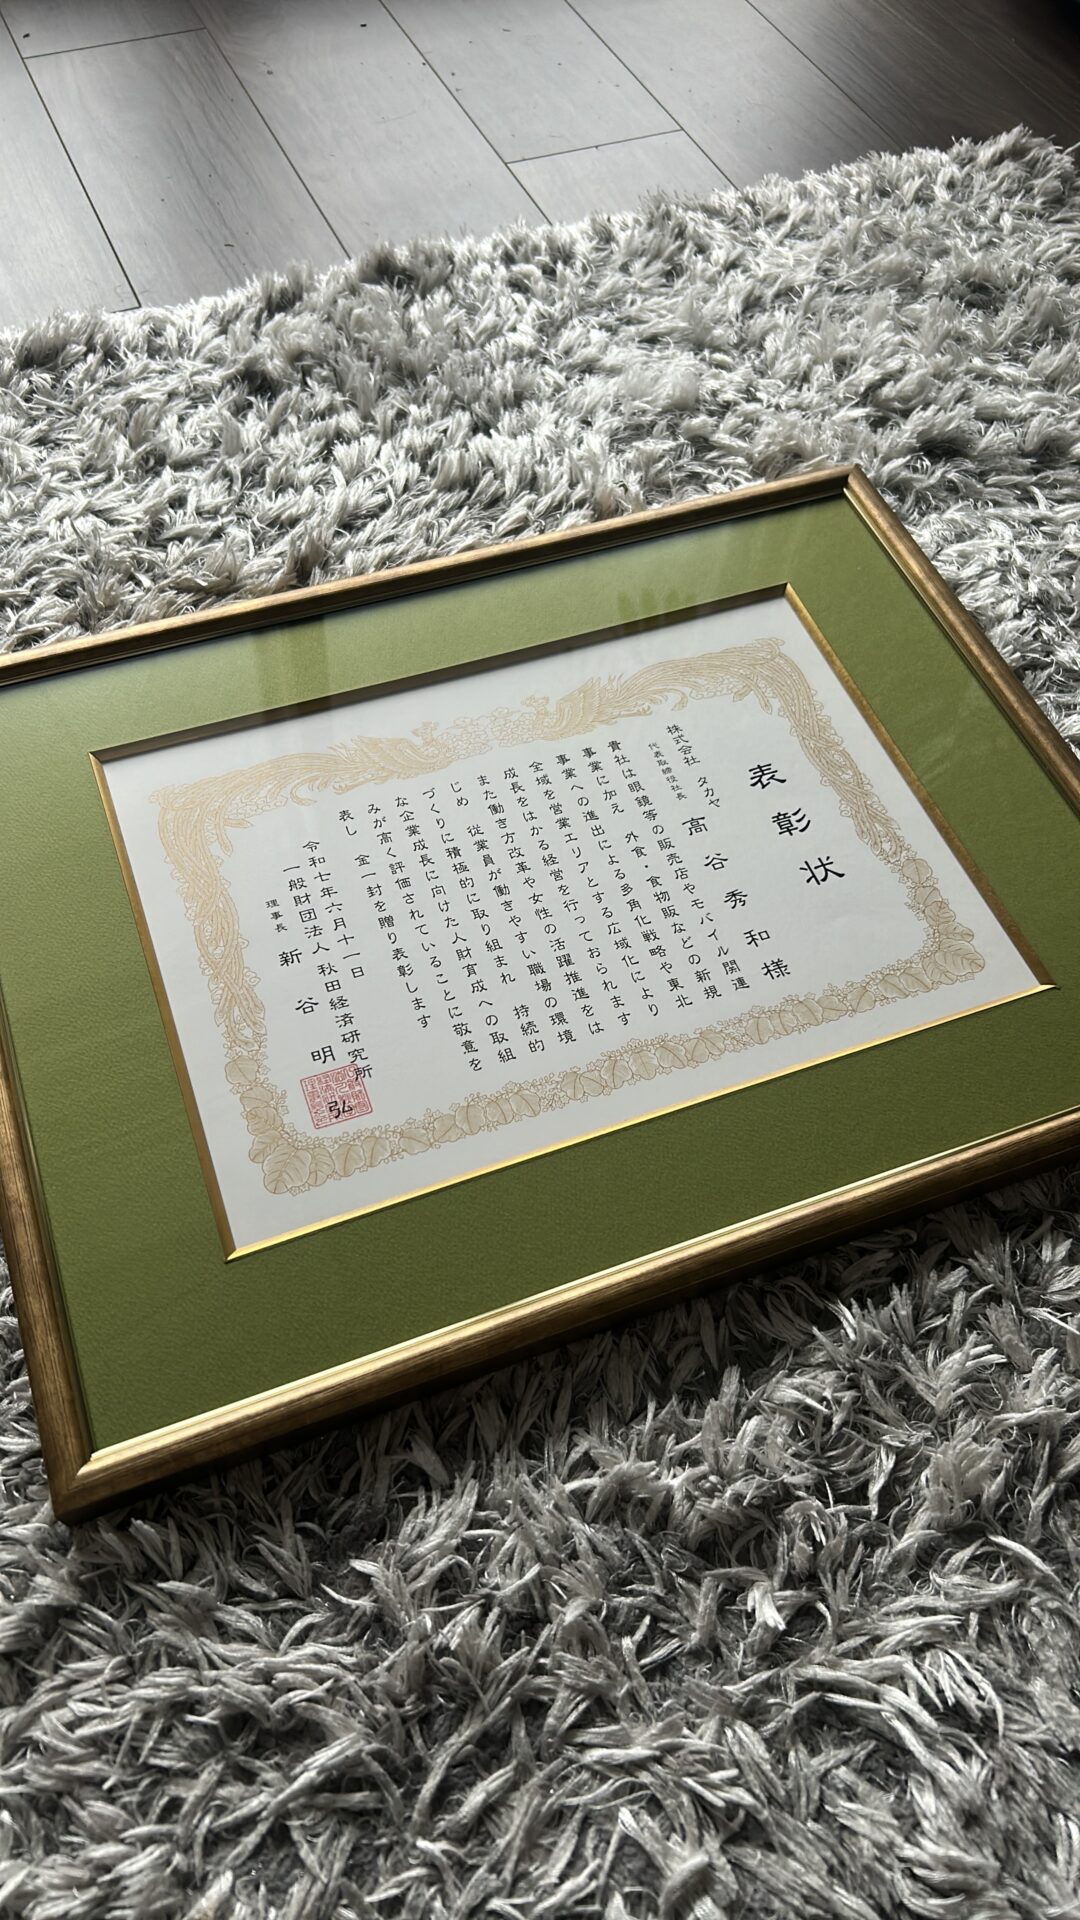 表彰状
株式会社 タカヤ
代表取締役社長 高谷秀和様
貴社は眼鏡等の販売店やモバイル関連
事業に加え 外食・食物販などの新規
事業への進出による多角化戦略や東北
全域を営業エリアとする広域化により
成長をはかる経営を行っておられます
また働き方改革や女性の活躍推進をは
じめ 従業員が働きやすい職場の環境
づくりに積極的に取り組まれ 持続的
な企業成長に向けた人財育成への取組
みが高く評価されていることに敬意を
表し 金一封を贈り表彰します
令和七年六月十一日
一般財団法人 秋田経済研究所
理事長 新谷明弘